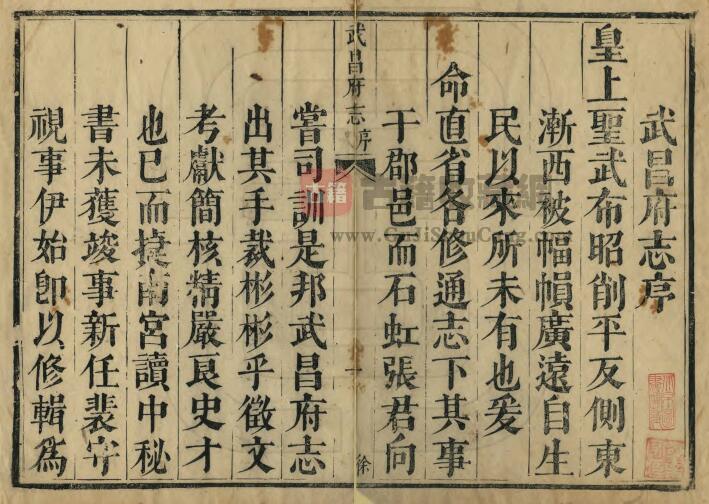 武昌府志序
皇上聖武布昭削平反側東
漸西被幅幀廣遠自生
民以來所未有也爰
命直省各修通志下其事
于郡邑而石虹張君向
武昌府志 序 一 徐
嘗司訓是邦武昌府志
出其手裁彬彬乎徵文
考獻簡核精嚴良史才
也已而捷南宮讀中秘
書未獲竣事新任裴守
視事伊始卽以修輯為
古籍